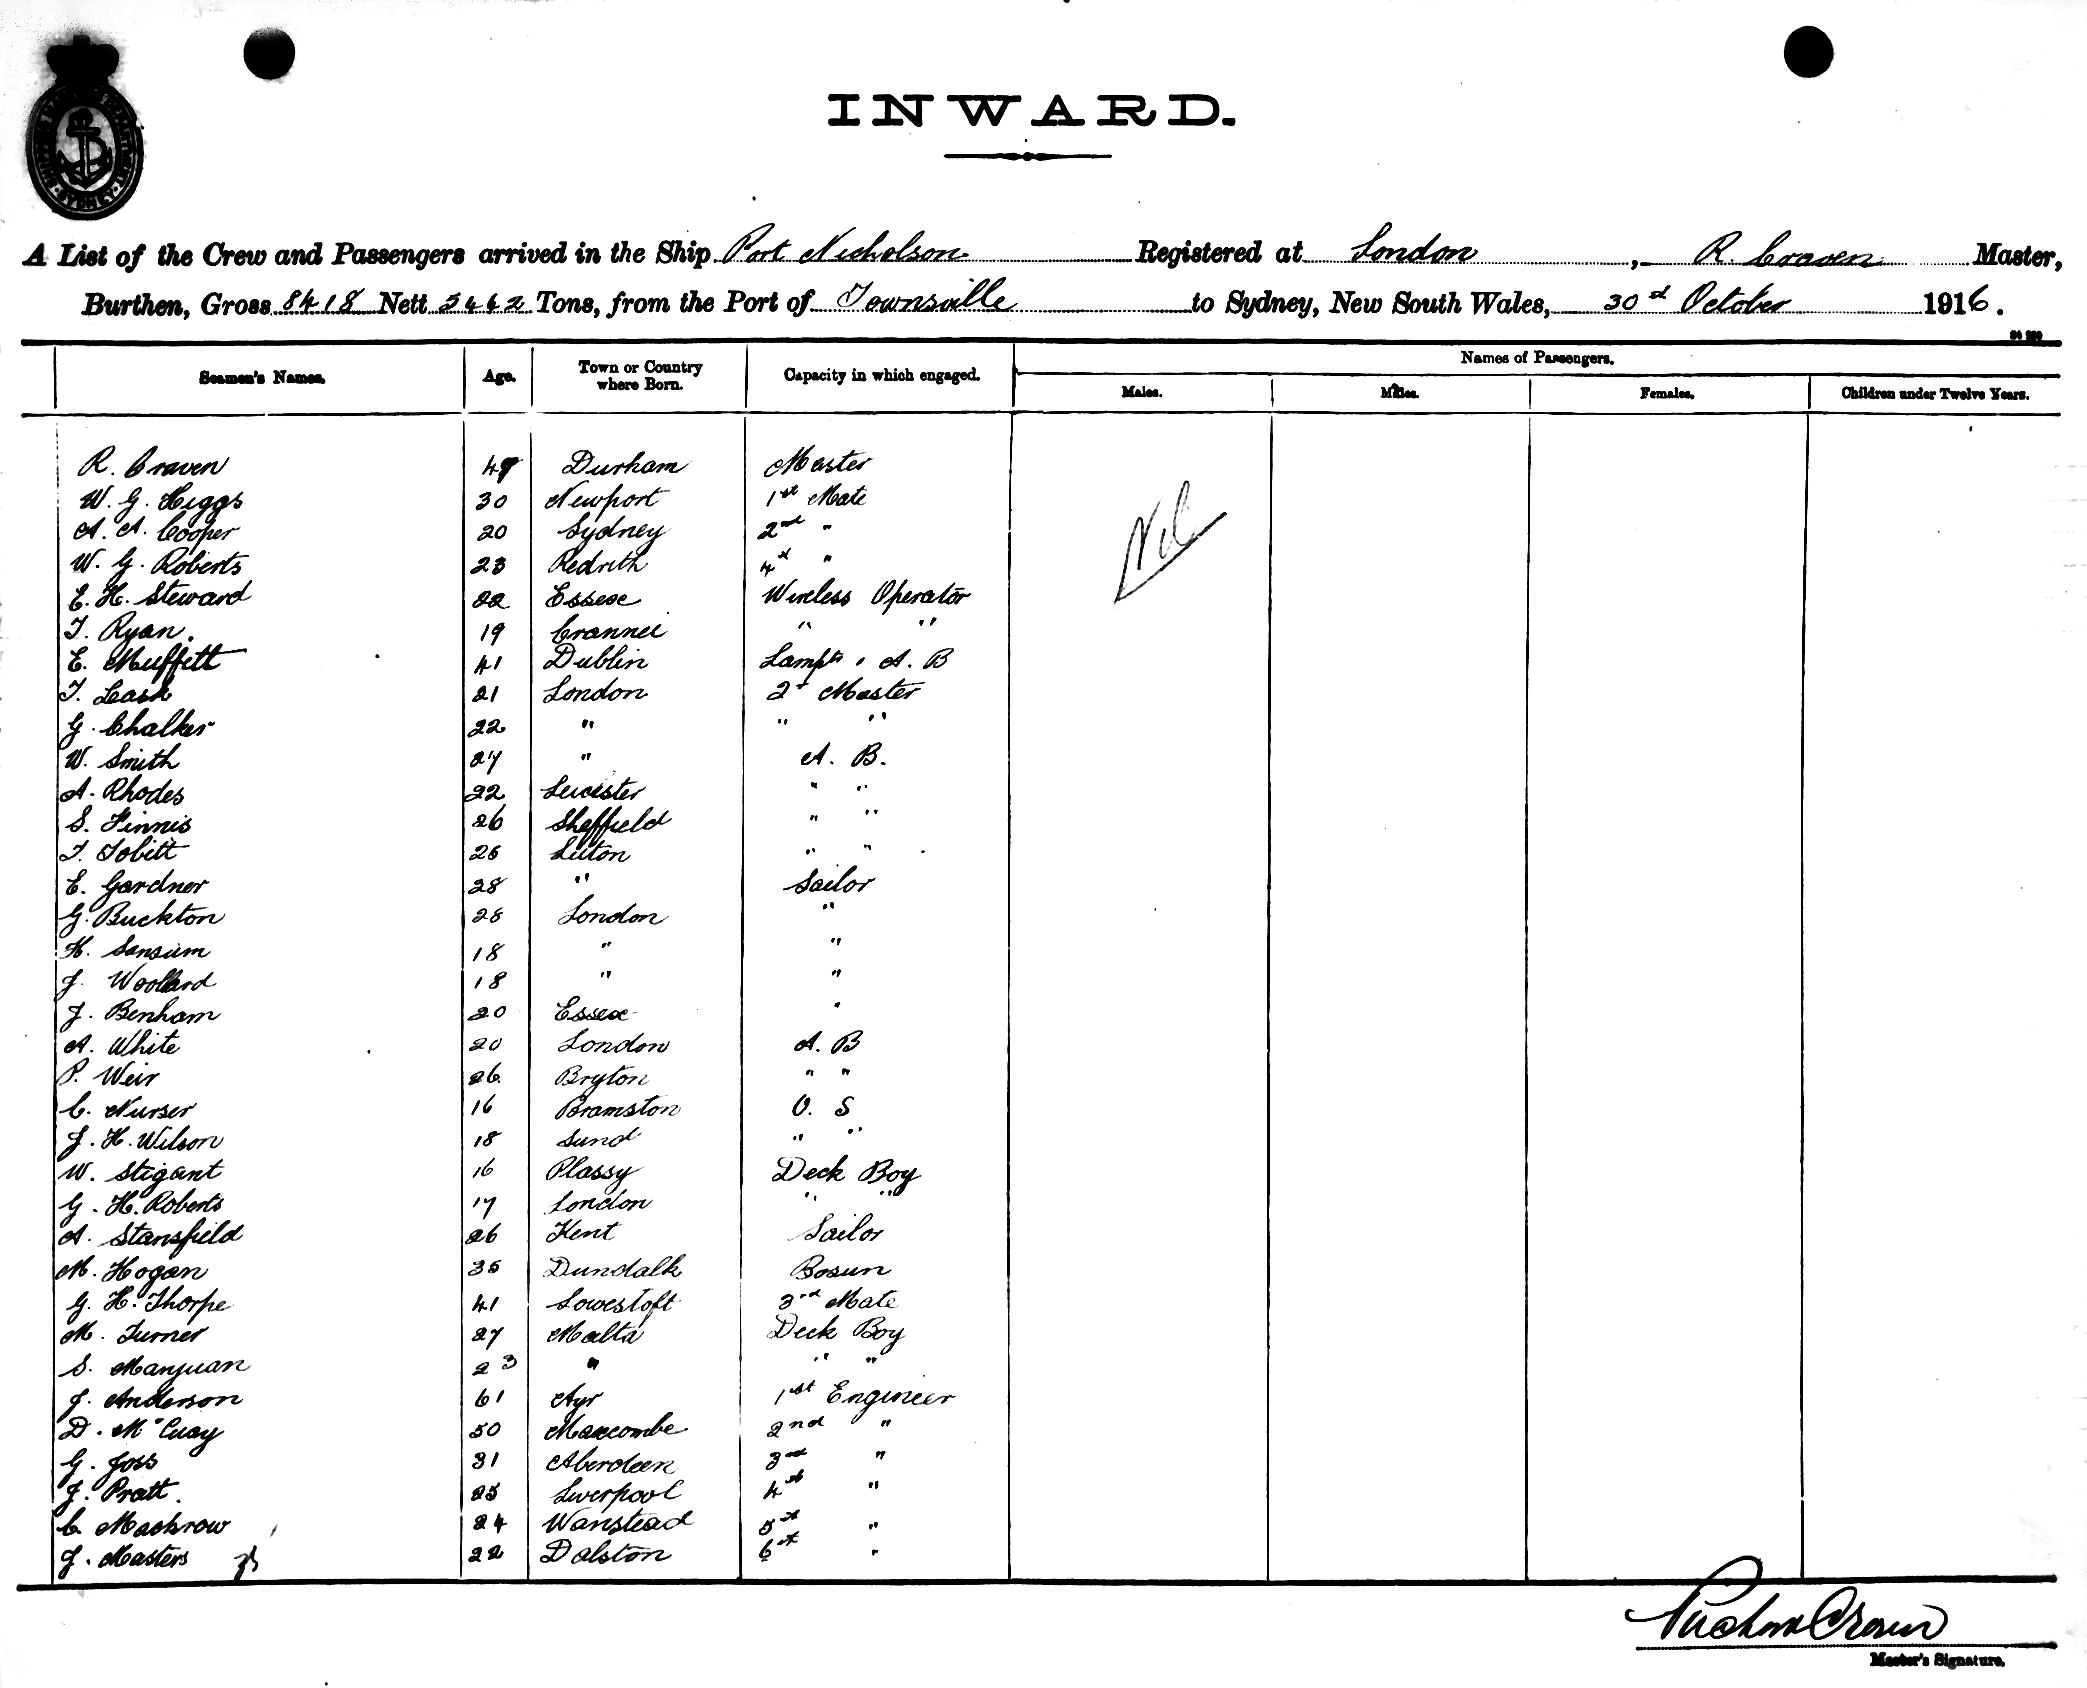 INWARD.
A List of the Crew and Passengers arrived in the Ship Port Nicholson Registered at London, R. Craven Master,
Burthen, Gross 8418 Nett 5442 Tons, from the Port of Townsville to Sydney, New South Wales, 30th October 1916.
Names of Passengers.
Seamen's Names. Age. Town or Country where Born. Capacity in which engaged. Males. Males. Females. Children under Twelve Years.
R. Craven 49 Durham Master
Nil
W. G. Higgs 30 Newport 1st Mate
A. A. Cooper 20 Sydney 2nd "
W. G. Roberts 23 Redruth 4th "
E. H. Steward 22 Essex Wireless Operator
T. Ryan. 19 " "
E. Muffett 41 Dublin Lamps & A. B
T. Leask 21 London 2d Master
G. Chalker 22 " " "
W. Smith 27 " A. B.
A. Rhodes 22 Leicester " "
S. Finnis 26 Sheffield " "
T. Tobitt 26 Luton " "
E. Gardner 28 " Sailor
G. Buckton 28 London "
H. Sansum 18 " "
J. Woollard 18 " "
J. Benham 20 Essex "
A. White 20 London A. B
P. Weir 26 Bryton " "
C. Nurser 16 Bramston O. S
J. H. Wilson 18 Sund " "
W. Stigant 16 Plassy Deck Boy
G. H. Roberts 17 London " "
A. Stansfield 26 Kent Sailor
M. Hogan 35 Dundalk Bosun
G. H. Thorpe 41 Lowestoft 3rd Mate
M. Turner 27 Malta Deck Boy
S. Manjuan 23 " " "
J. Anderson 61 Ayr 1st Engineer
D. McCuay 50 Maxcombe 2nd "
G. Joss 31 Aberdeen 3rd "
J. Pratt. 25 Liverpool 4th "
C. Mackrow 24 Wanstead 5th "
J. Masters 22 Dalston 6th "
Master's Signature.